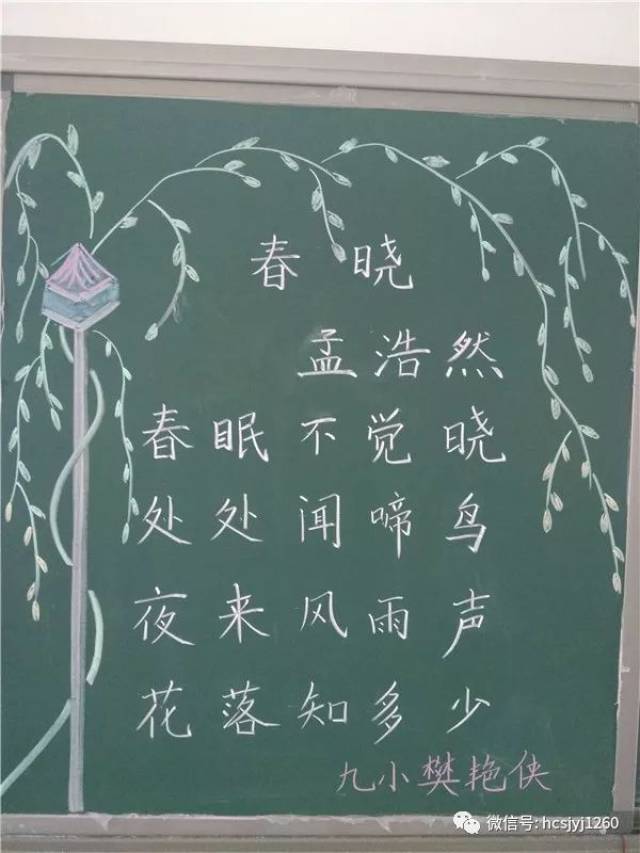 春晓
孟浩然
春眠不觉晓
处处闻啼鸟
夜来风雨声
花落知多少
九小樊艳侠
微信号: hcsjyj1260